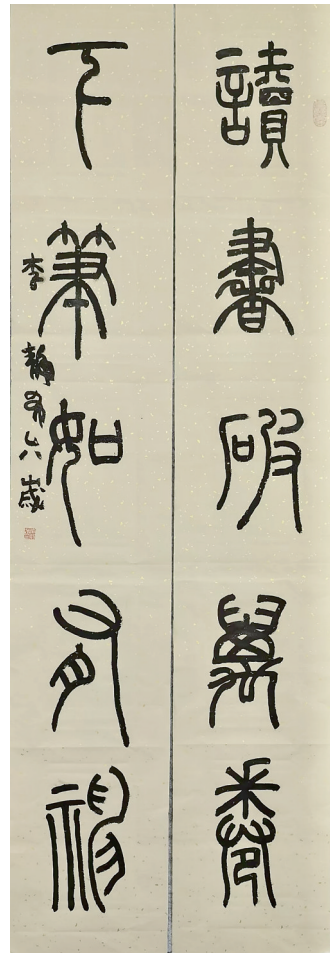 讀書破萬卷
下筆如有神
李靜萮六歲